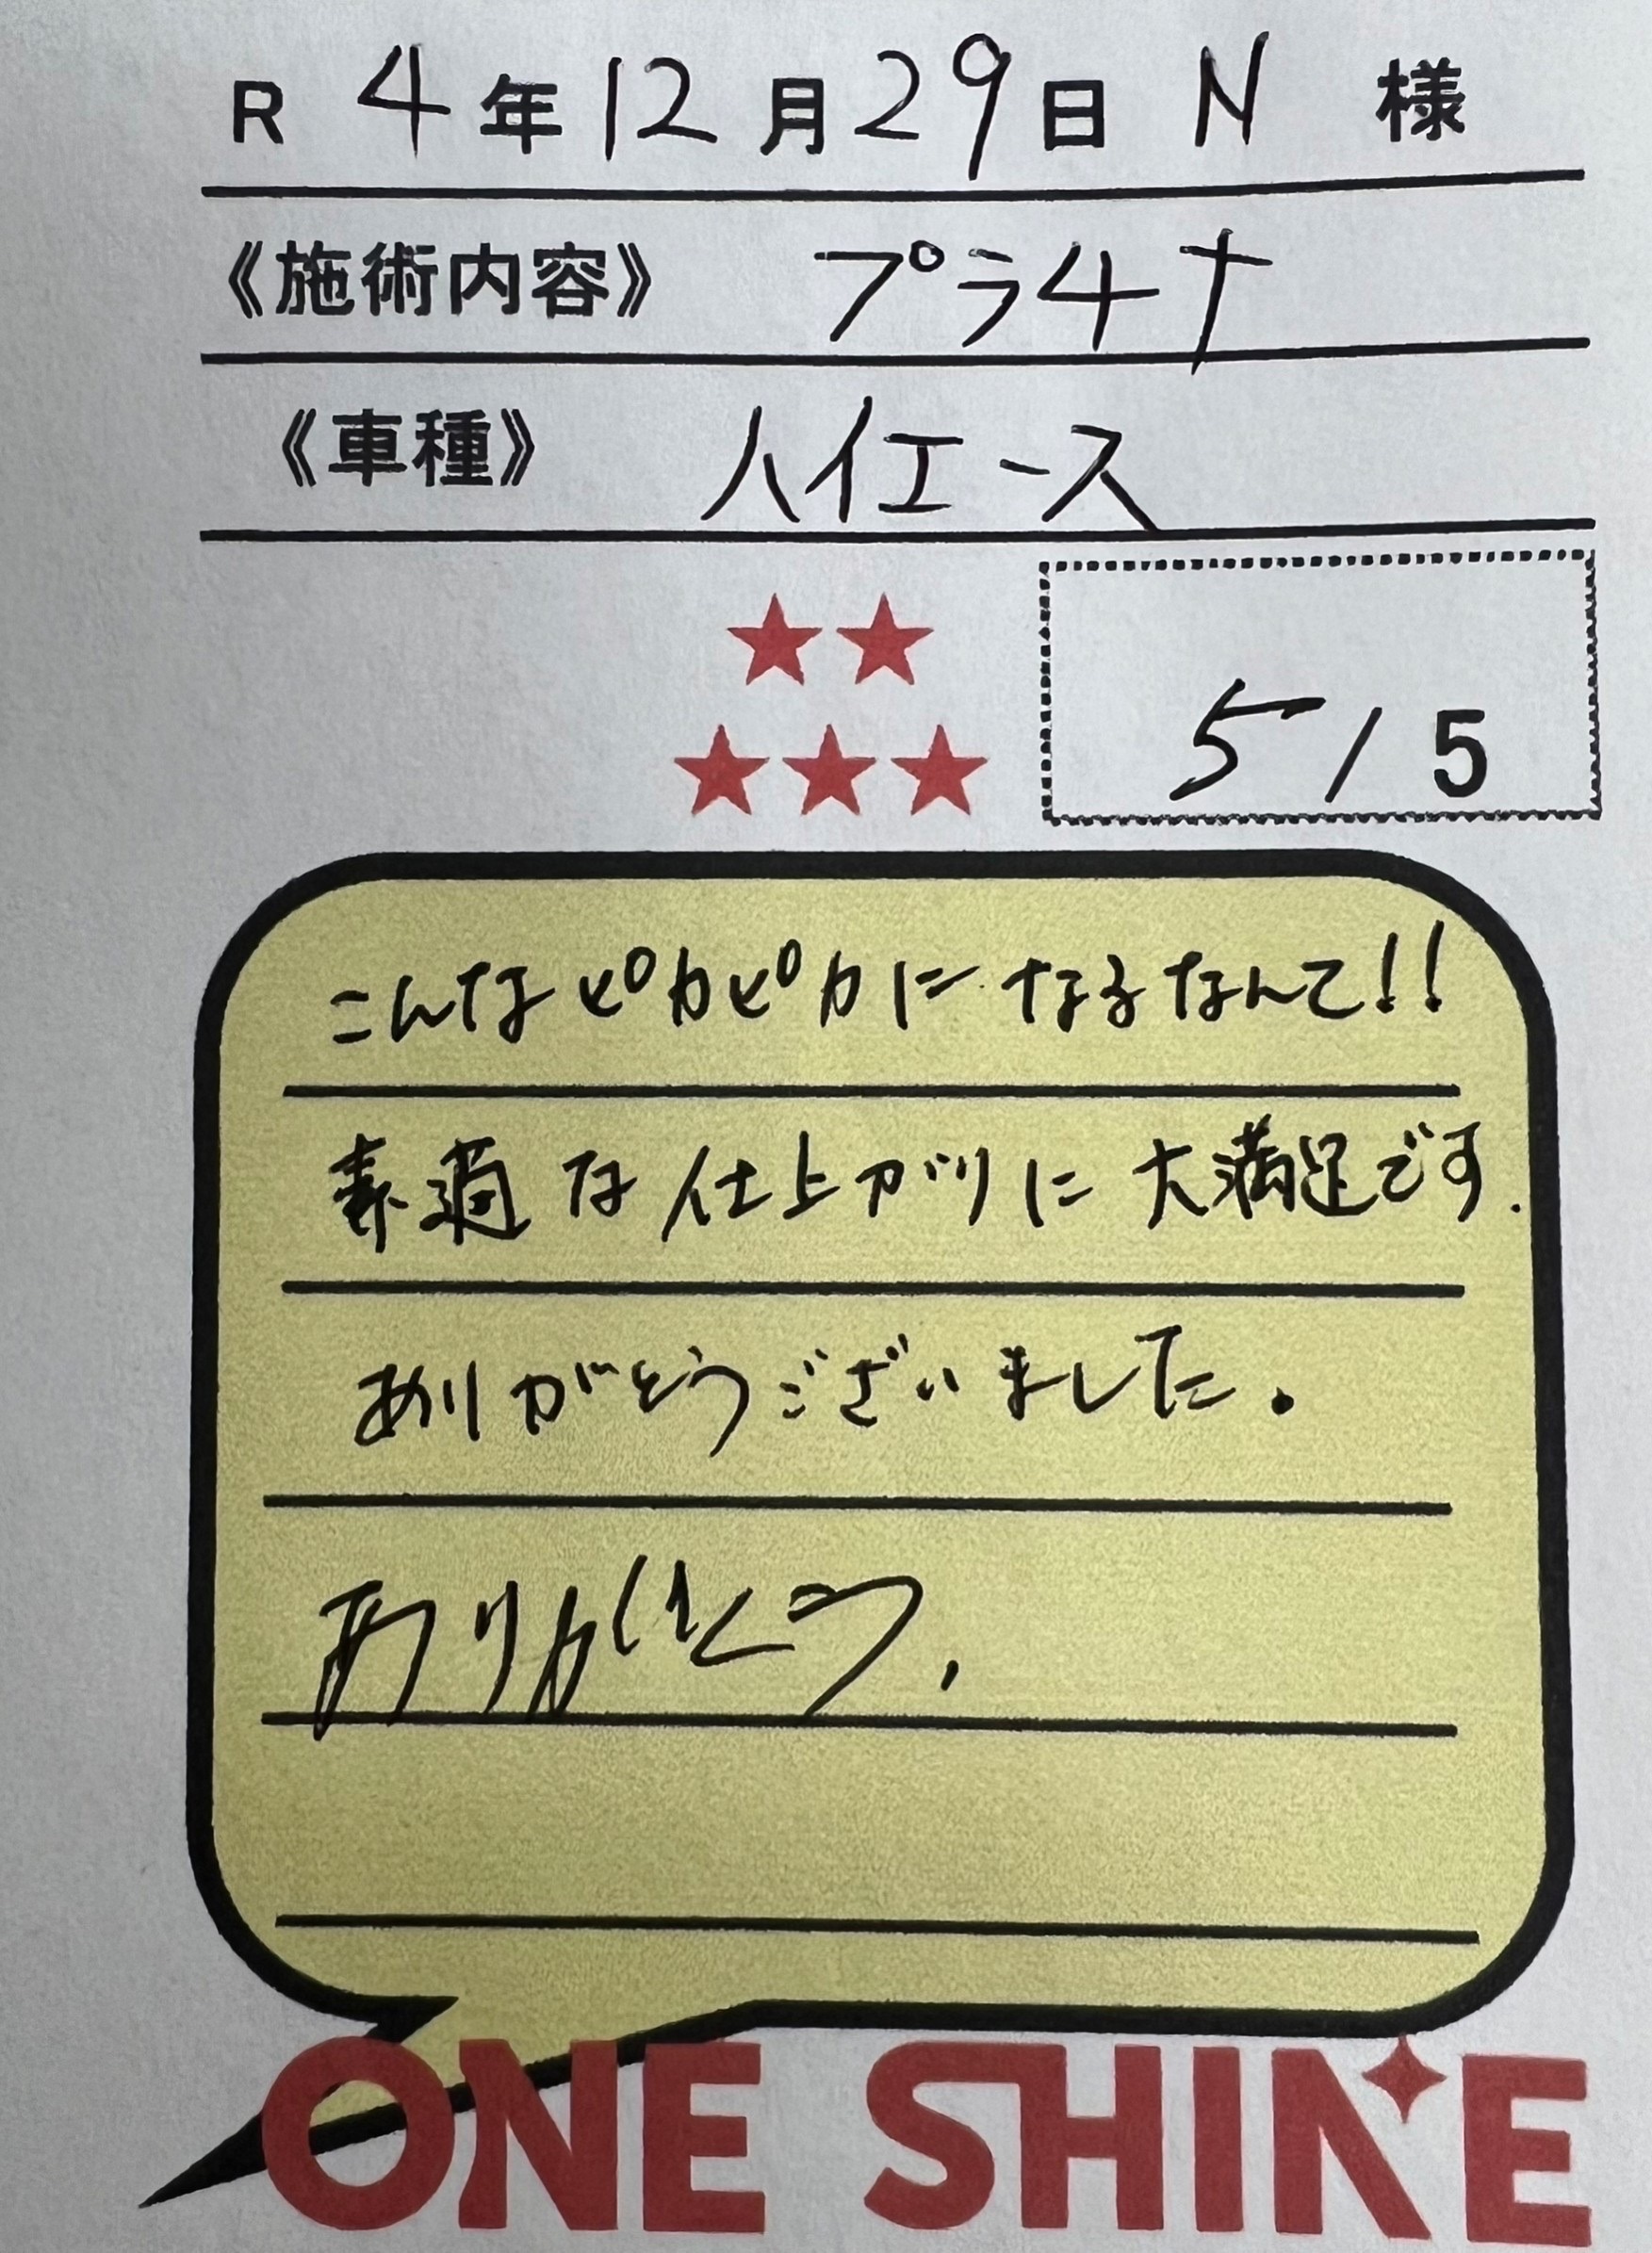 R 4年12月29日 N 様
《施術内容》 プラチナ
《車種》 ハイエース
5/5
こんなピカピカになるなんて!!
素適な仕上がりに大満足です.
ありがとうございました。
ありがとう.
ONE SHINE